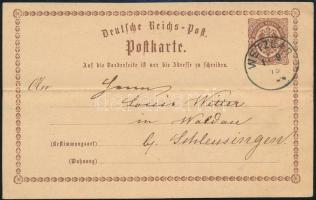 Deutsche Reichs-Post.
Postkarte.
Auf die Vorderseite ist nur die Adresse zu schreiben.
An Herrn
Louis Witter
in Waldau
b/ Schleusingen
(Bestimmungsort)
(Wohnung)
WETZLAR